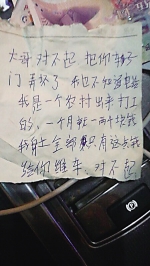 大哥 对不起 把你车子
门弄坏了 我也不知道怎
我是一个农村出来打工
的、一个月挣一两千块钱
我身上全部 只有这点钱
给你维车、对不起
hp